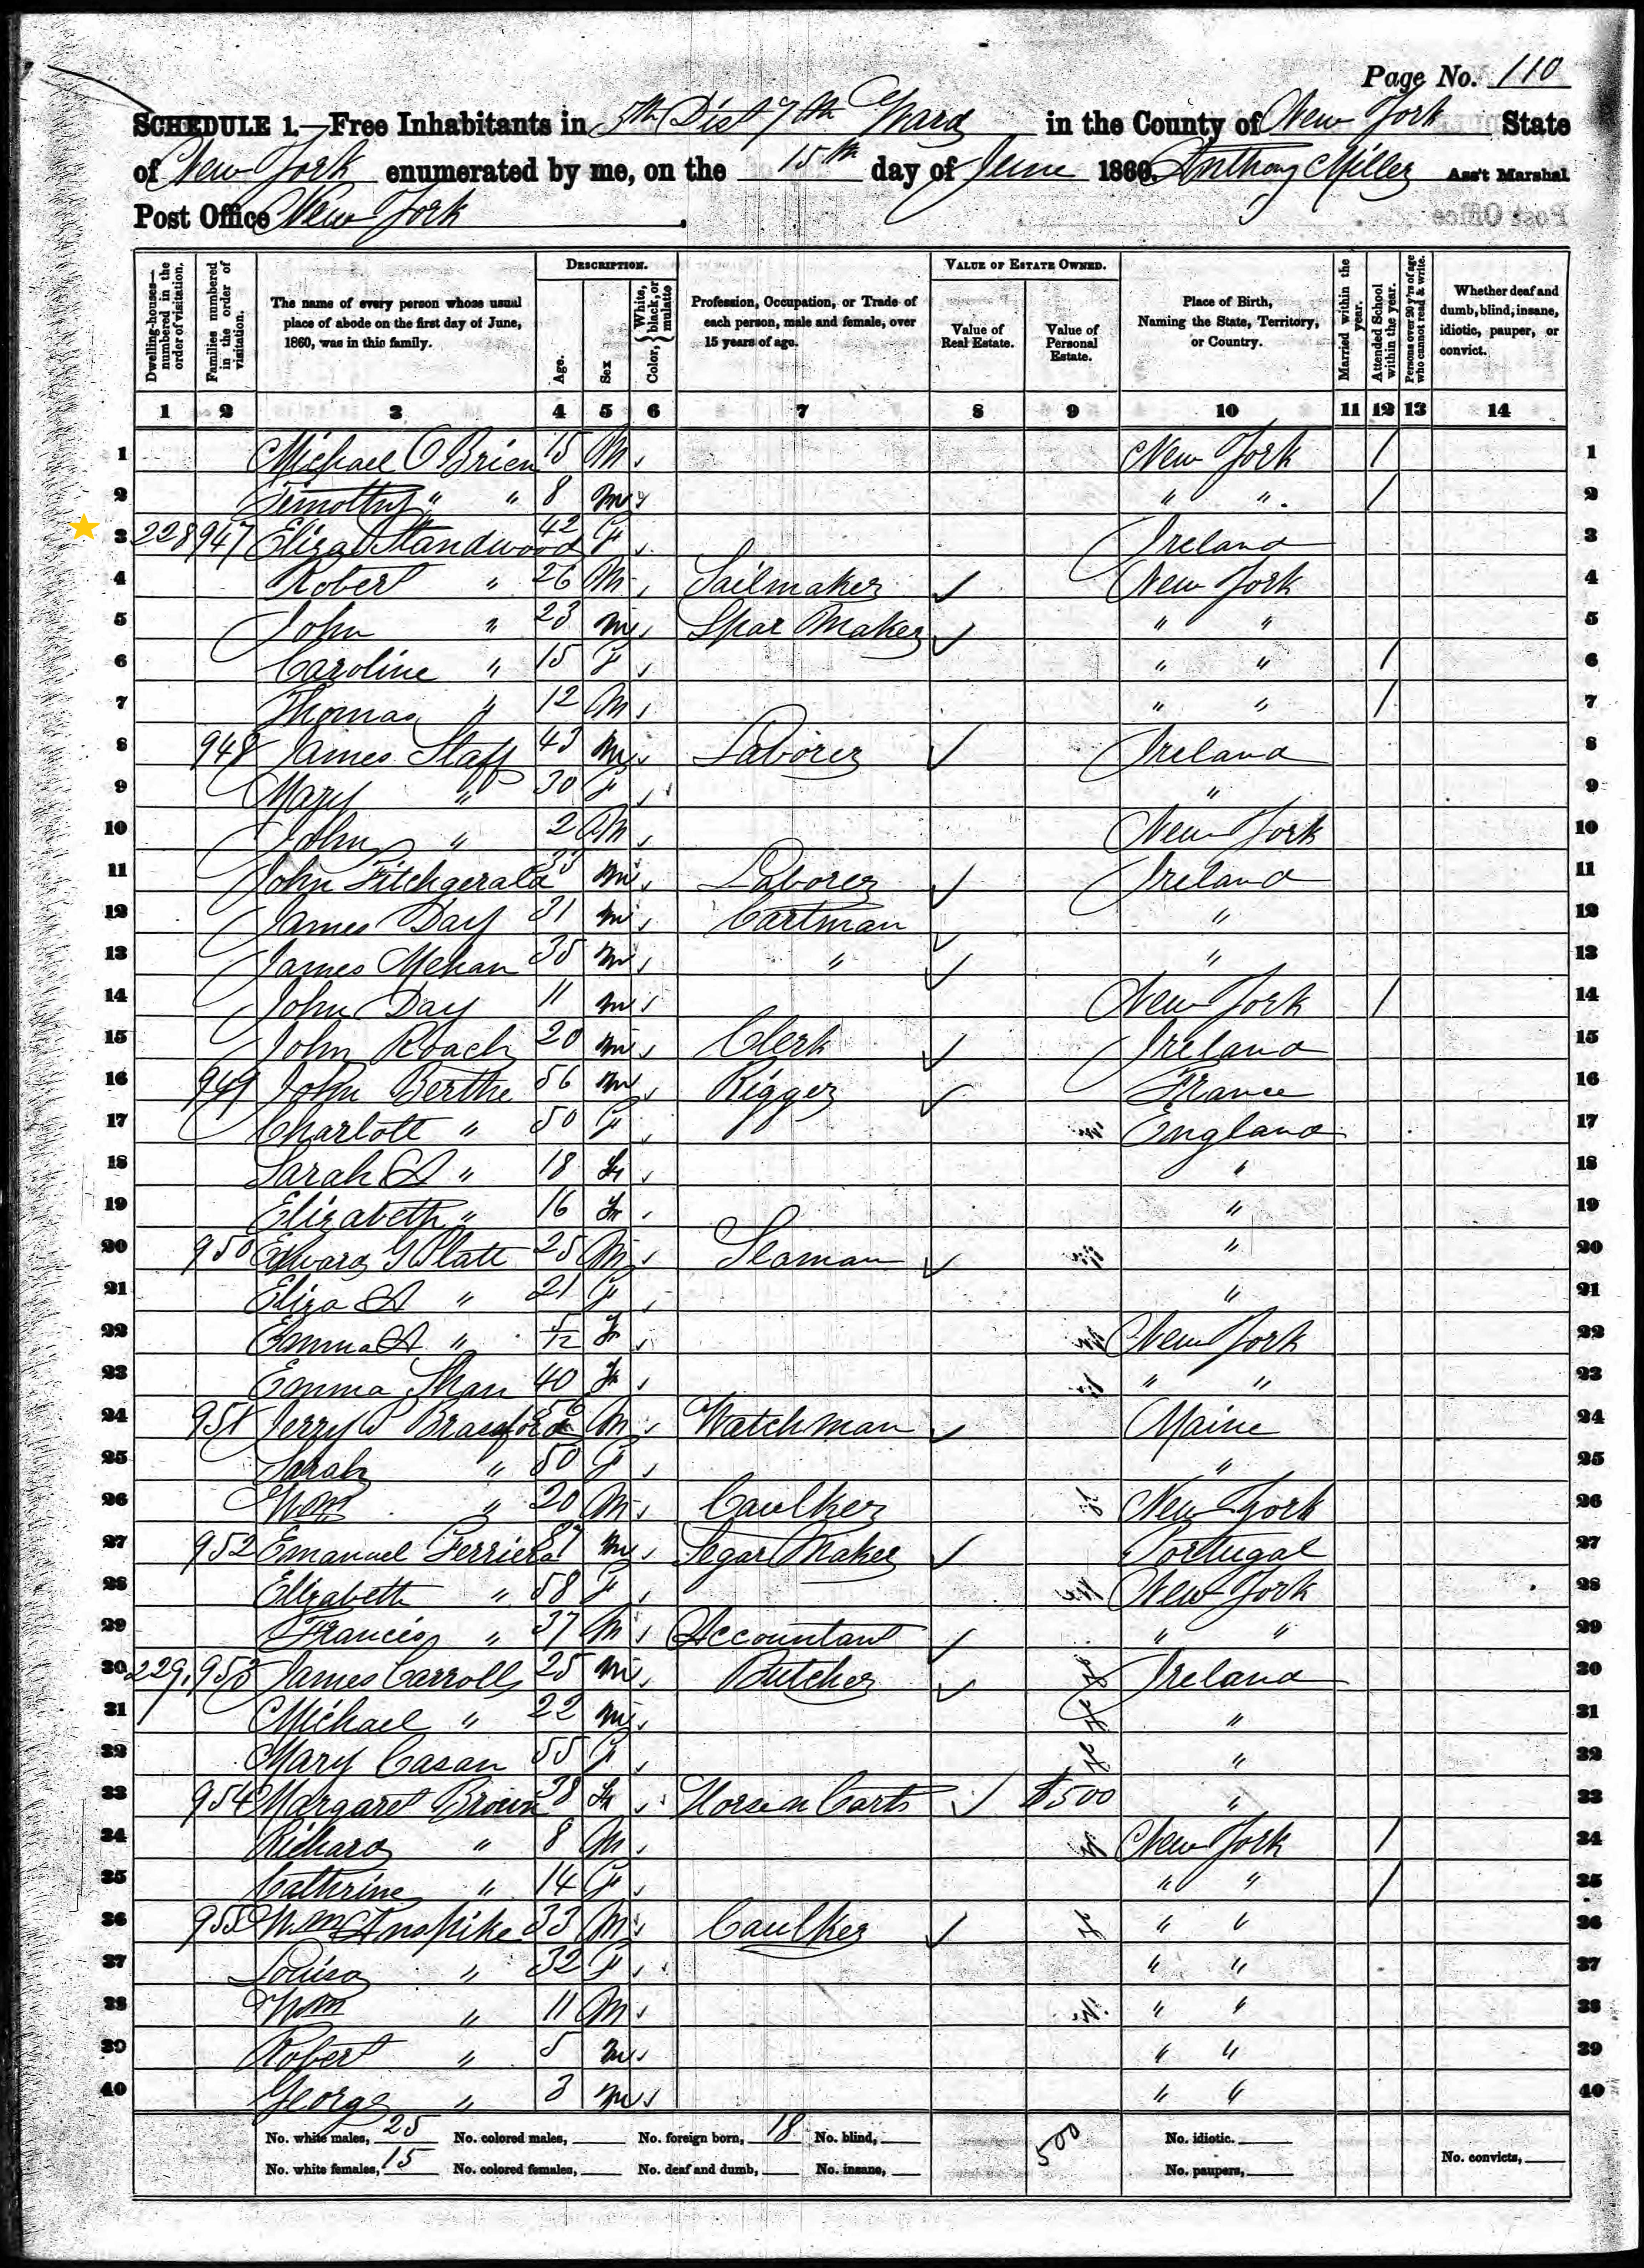 Page No. 110
SCHEDULE 1.—Free Inhabitants in 5th Dist 7th Ward in the County of New York State
of New York enumerated by me, on the 15th day of June 1860. Anthony Miller Ass't Marshal
Post Office New York.
DESCRIPTION. VALUE OF ESTATE OWNED.
Dwelling-houses—numbered in the order of visitation.
Families numbered in the order of visitation.
The name of every person whose usual place of abode on the first day of June, 1860, was in this family.
Age.
Sex
Color, { White, black, or mulatto
Profession, Occupation, or Trade of each person, male and female, over 15 years of age.
Value of Real Estate.
Value of Personal Estate.
Place of Birth, Naming the State, Territory, or Country.
Married within the year.
Attended School within the year.
Persons over 20 y'rs of age who cannot read & write.
Whether deaf and dumb, blind, insane, idiotic, pauper, or convict.
1 2 3 4 5 6 7 8 9 10 11 12 13 14
1 Michael O Brien 15 M New York / 1
2 Timothy " " 8 m " " / 2
3 228 947 Eliza Standwood 42 F Ireland 3
4 Robert " 26 M Sailmaker ✓ New York 4
5 John " 23 m Spar Maker ✓ " " 5
6 Caroline " 15 F " " / 6
7 Thomas " 12 M " " / 7
8 948 James Staff 43 m Laborer ✓ Ireland 8
9 Mary " 30 F " 9
10 John " 2 M New York 10
11 John Fitchgerald 33 m Laborer ✓ Ireland 11
12 James Day 21 m Cartman ✓ " 12
13 James Mehan 35 m " ✓ " 13
14 John Day 11 m New York / 14
15 John Roach 20 m Clerk ✓ Ireland 15
16 949 John Berthe 56 m Rigger ✓ France 16
17 Charlott " 50 F England 17
18 Sarah A " 18 F " 18
19 Elizabeth " 16 F " 19
20 950 Edward G Platt 25 M Seaman ✓ " 20
21 Eliza A " 21 F " 21
22 Emma A " 5/12 F New York 22
23 Emma Shan 40 F " " 23
24 951 Jerry W M Watchman ✓ Maine 24
25 Sarah " 50 F " 25
26 Wm " 20 M Caulker New York 26
27 952 Emanuel Ferriera m Segar Maker ✓ Portugal 27
28 Elizabeth " 58 F New York 28
29 Francis " 37 M Accountant ✓ " " 29
30 229 953 James Carroll 25 m Butcher ✓ Ireland 30
31 Michael " 22 m " 31
32 Mary Casan 55 F " 32
33 954 Margaret Brown 38 F Horse n Carts ✓ $500 " 33
34 Richard " 8 M New York / 34
35 Cathrine " 14 F " " / 35
36 955 Wm 33 M Caulker ✓ " " 36
37 Louisa " 32 F " " 37
38 Wm " 11 M " " 38
39 Robert " 5 m " " 39
40 George " 3 m " " 40
No. white males, 25 No. colored males, No. foreign born, 18 No. blind, 500 No. idiotic.
No. white females, 15 No. colored females, No. deaf and dumb, No. insane, No. paupers, No. convicts,